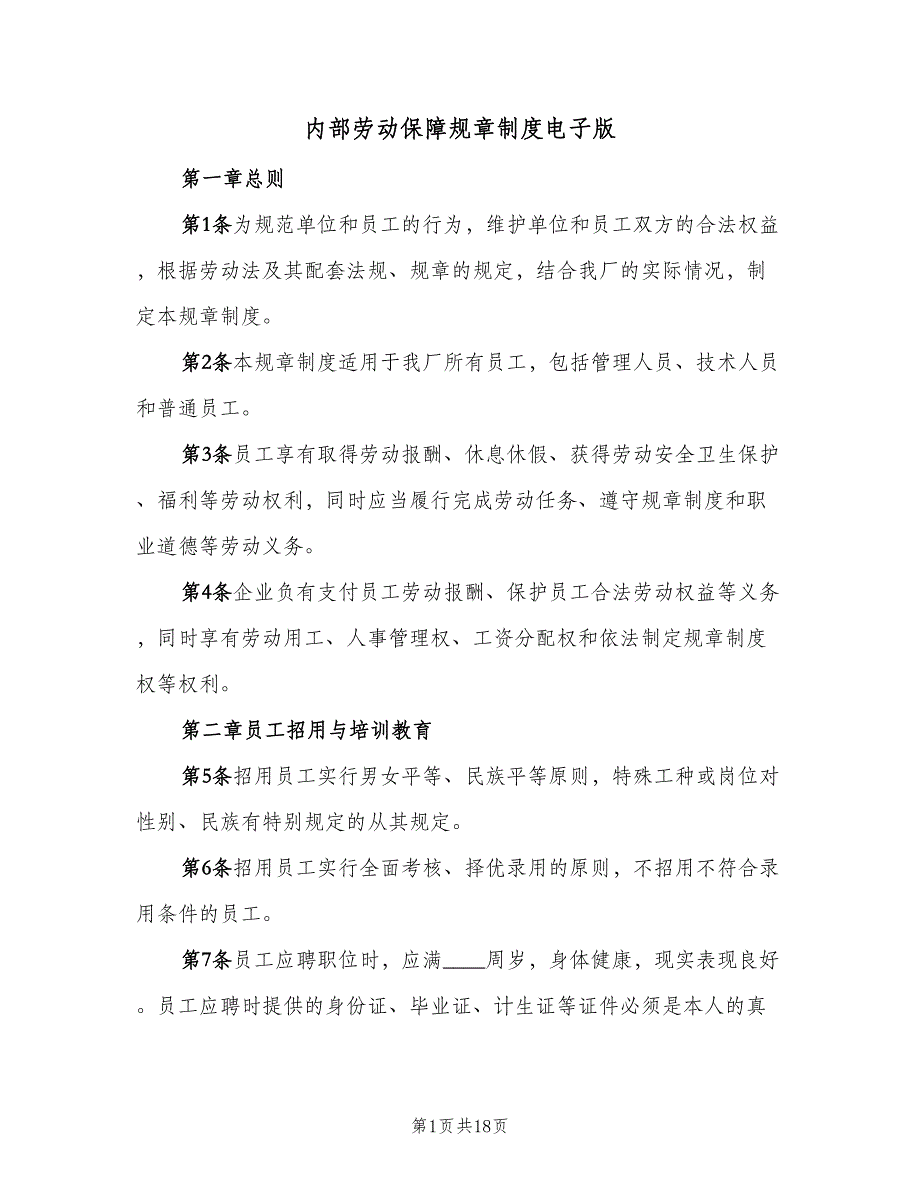 内部劳动保障规章制度电子版
第一章总则
第1条为规范单位和员工的行为，维护单位和员工双方的合法权益
，根据劳动法及其配套法规、规章的规定，结合我厂的实际情况，制
定本规章制度。
第2条本规章制度适用于我厂所有员工，包括管理人员、技术人员
和普通员工。
第3条员工享有取得劳动报酬、休息休假、获得劳动安全卫生保护
、福利等劳动权利，同时应当履行完成劳动任务、遵守规章制度和职
业道德等劳动义务。
第4条企业负有支付员工劳动报酬、保护员工合法劳动权益等义务
，同时享有劳动用工、人事管理权、工资分配权和依法制定规章制度
权等权利。
第二章员工招用与培训教育
第5条招用员工实行男女平等、民族平等原则，特殊工种或岗位对
性别、民族有特别规定的从其规定。
第6条招用员工实行全面考核、择优录用的原则，不招用不符合录
用条件的员工。
第7条员工应聘职位时，应满____周岁，身体健康，现实表现良好
。员工应聘时提供的身份证、毕业证、计生证等证件必须是本人的真
第1页共18页